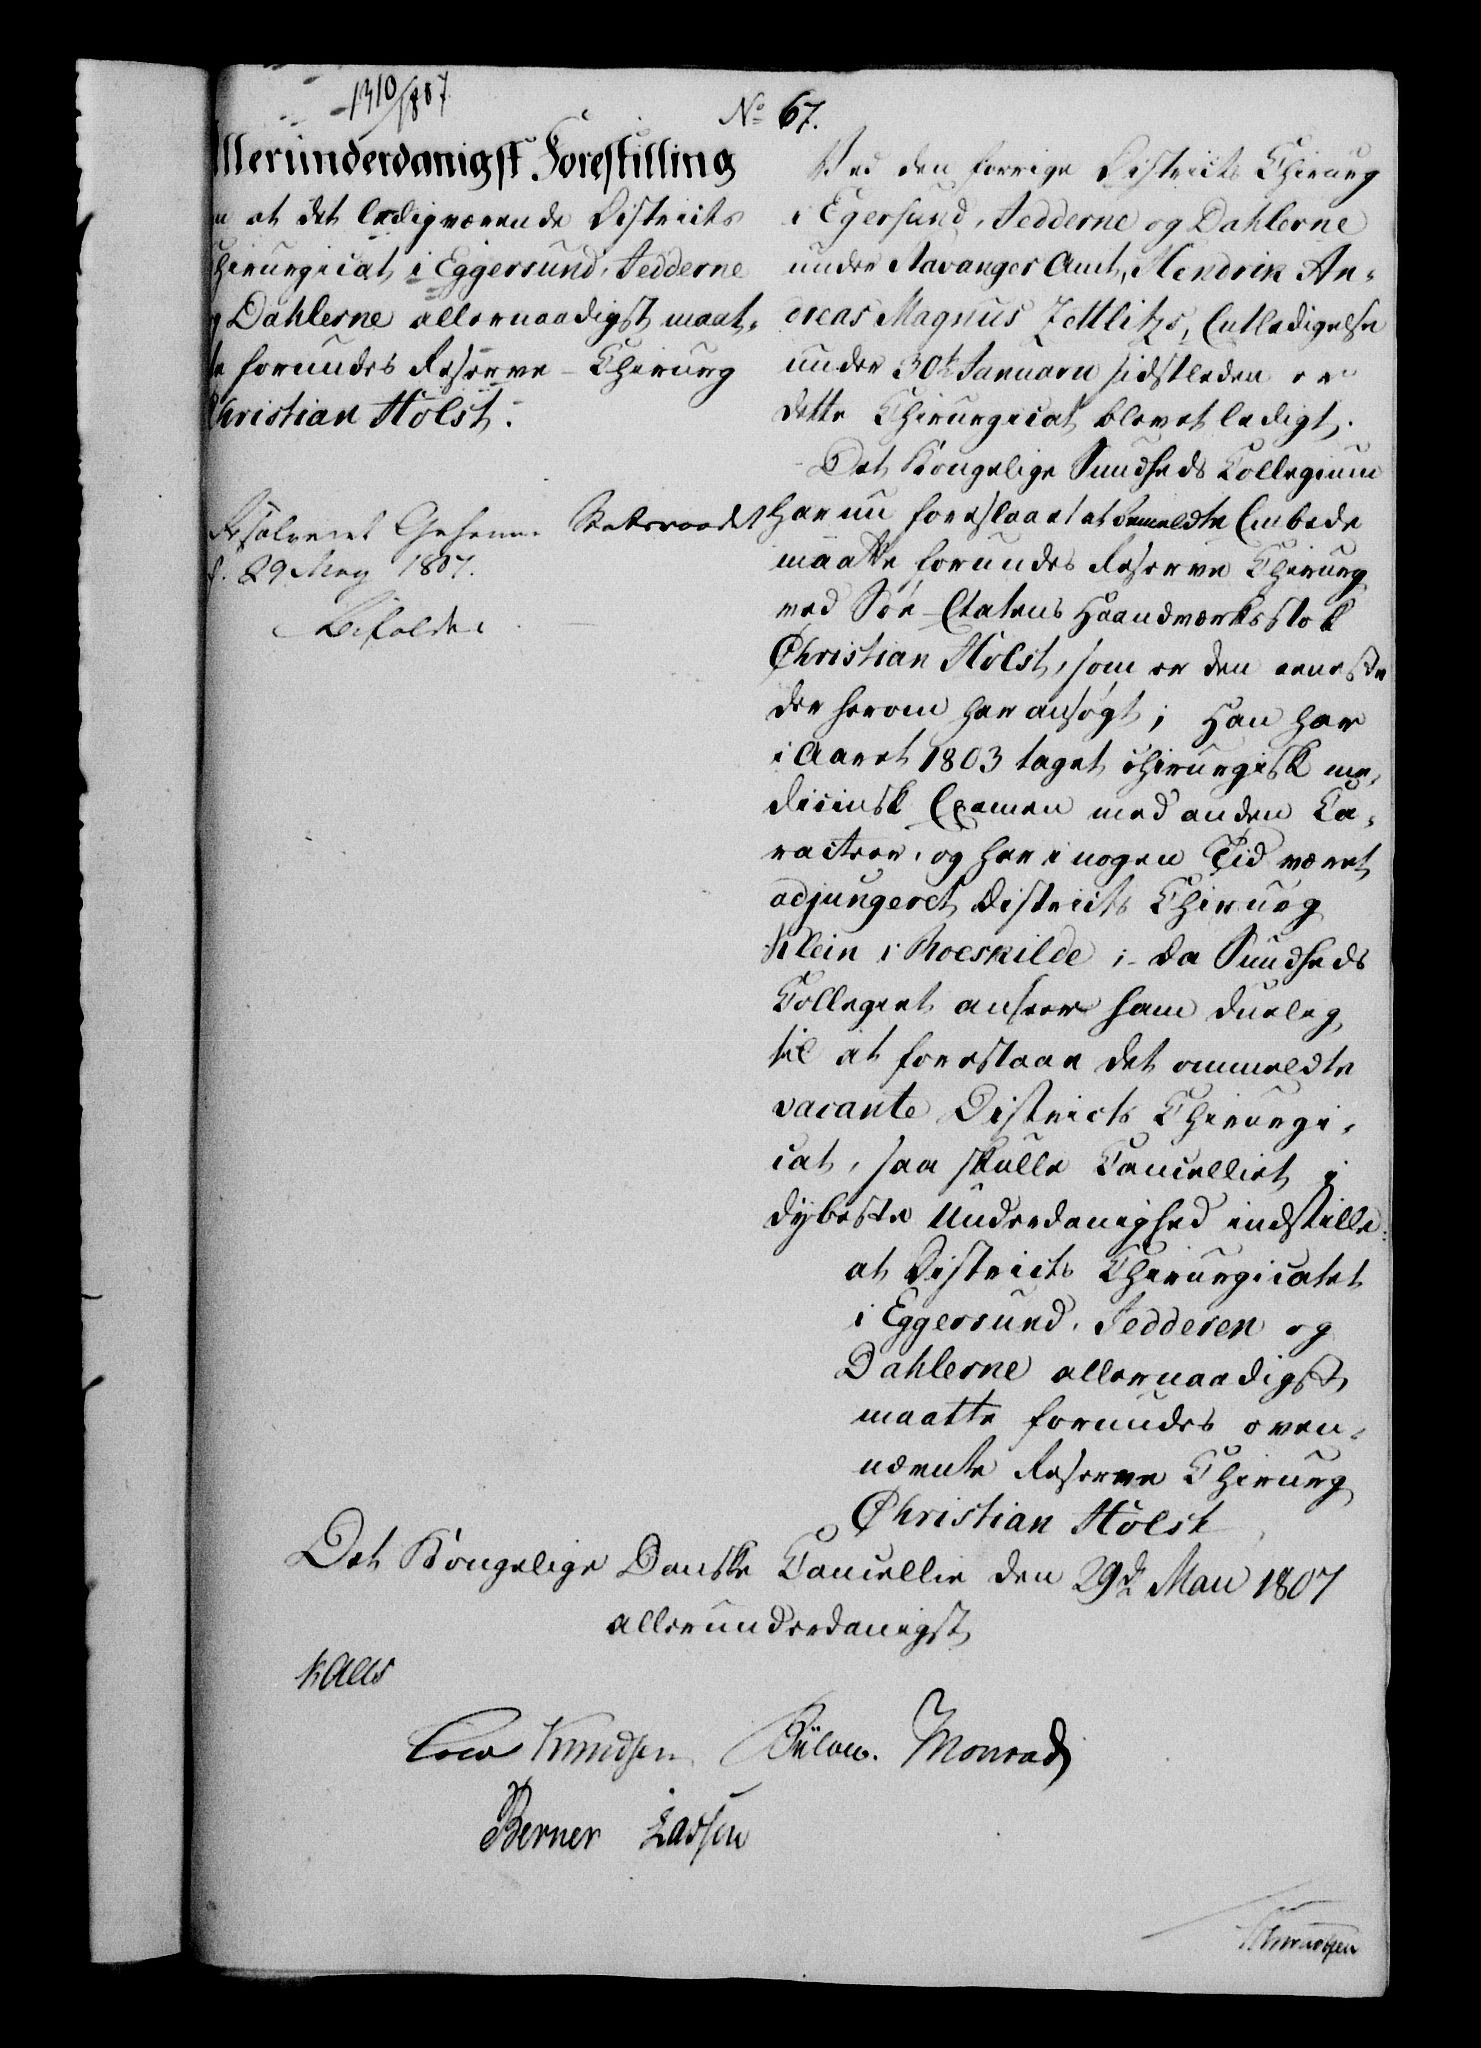 1310/1807
No 67.
Allerunderdanigst Forestilling
at det ledigværende Districts
Chirurgicat i Eggersund, Jedderne
og Dahlerne allernaadigst maat-
te forundes Reserve-Chirurg
Christian Holst.
Resolveret Geheime Statsraadet
d. 29 May 1807.
Bifaldes
Ved den forrige Districts Chirurg
i Egersund, Jedderne og Dahlerne
under Stavanger Amt, Hendrik An-
dreas Magnus Zettlitzs, Entledigelse
under 30te Januarii sidstleden er
dette Chirurgicat blevet ledigt.
Det Kongelige Sundheds Collegium
har nu foreslaaet at bemeldte Embede
maatte forundes Reserve Chirurg
ved Søe-Etatens Haandværksstok
Christian Holst, som er den eeneste
der herom har ansøgt; Han har
i Aaret 1803 taget chirurgisk me-
dicinsk Examen med anden Ca-
racteer, og har i nogen Tid været
adjungeret Districts Chirurg
Klein i Roeskilde; - da Sundheds
Collegiet anseer ham duelig
til at forestaae det ommeldte
vacante Districts Chirurgi-
cat, saa skulle Cancelliet i
dybeste Underdanighed indstille:
at Districts Chirurgicatet
i Eggersund, Jedderen og
Dahlerne allernaadigst
maatte forundes oven-
nævnte Reserve Chirurg
Christian Holst
Det Kongelige Danske Cancellie den 29de Maii 1807
allerunderdanigst
Kaas
Cold Knudsen Bülow. Monrad
Berner Lassen
Knudsen